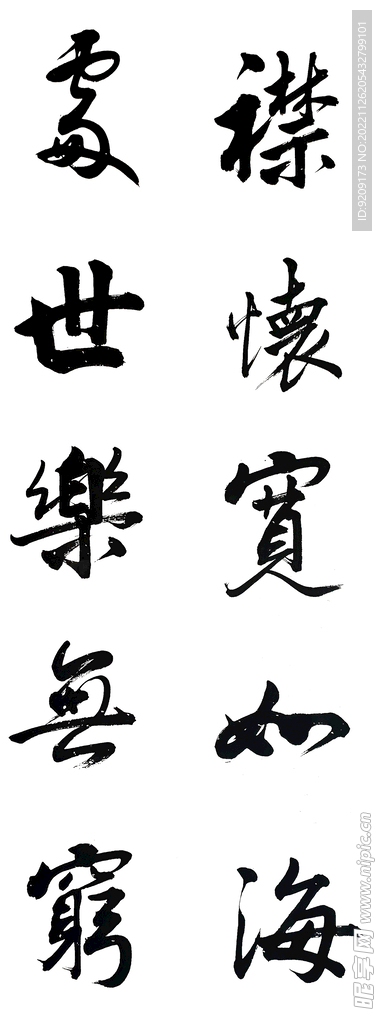 襟懷寬如海
處世樂無窮
ID:9209173 NO:20221126205432799101
昵享网 www.nipic.cn